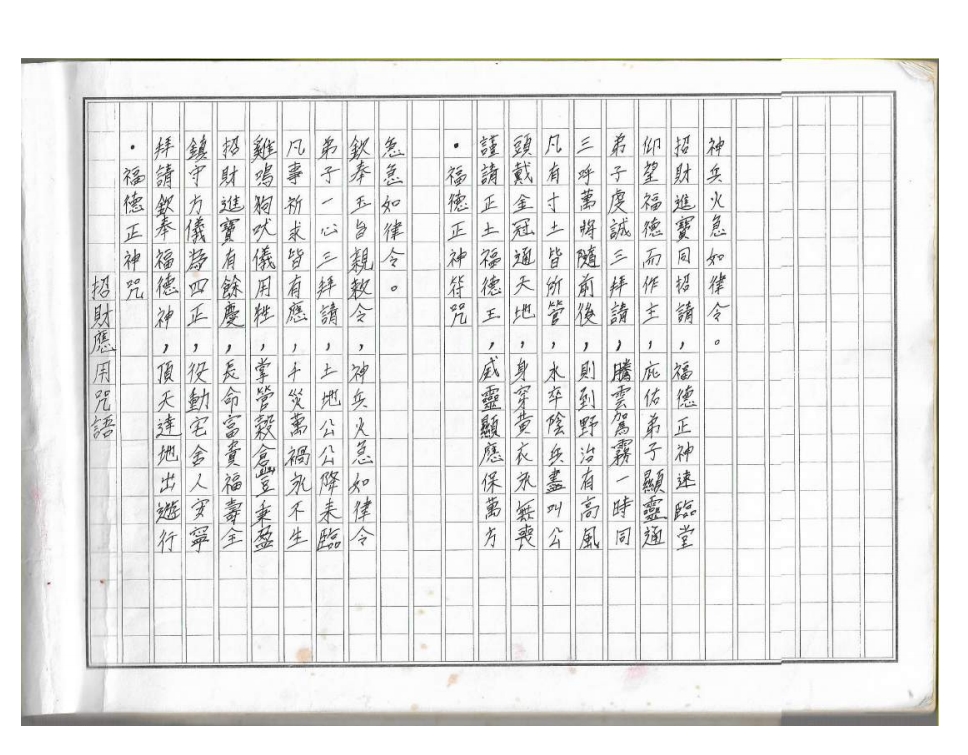 招財應用咒語
・福德正神咒
拜請欽奉福德神，頂天達地出遊行
鎮守方儀為四正，役動宅舍人安寧
招財進寶有餘慶，長命富貴福壽全
雞鳴狗吠儀用牲，掌管穀倉豐秉盈
凡事祈求皆有應，千災萬禍永不生
弟子一心三拜請，土地公公降來臨
欽奉玉旨親敕令，神兵火急如律令
急急如律令。
・福德正神符咒
謹請正土福德王，威靈顯應保萬方
頭戴金冠通天地，身穿黃衣永無喪
凡有寸土皆所管，水卒陰兵盡叫公
三呼萬將隨前後，則到野治有高風
弟子虔誠三拜請，騰雲駕霧一時同
仰望福德而作主，庇佑弟子顯靈通
招財進寶同招請，福德正神速臨堂
神兵火急如律令。